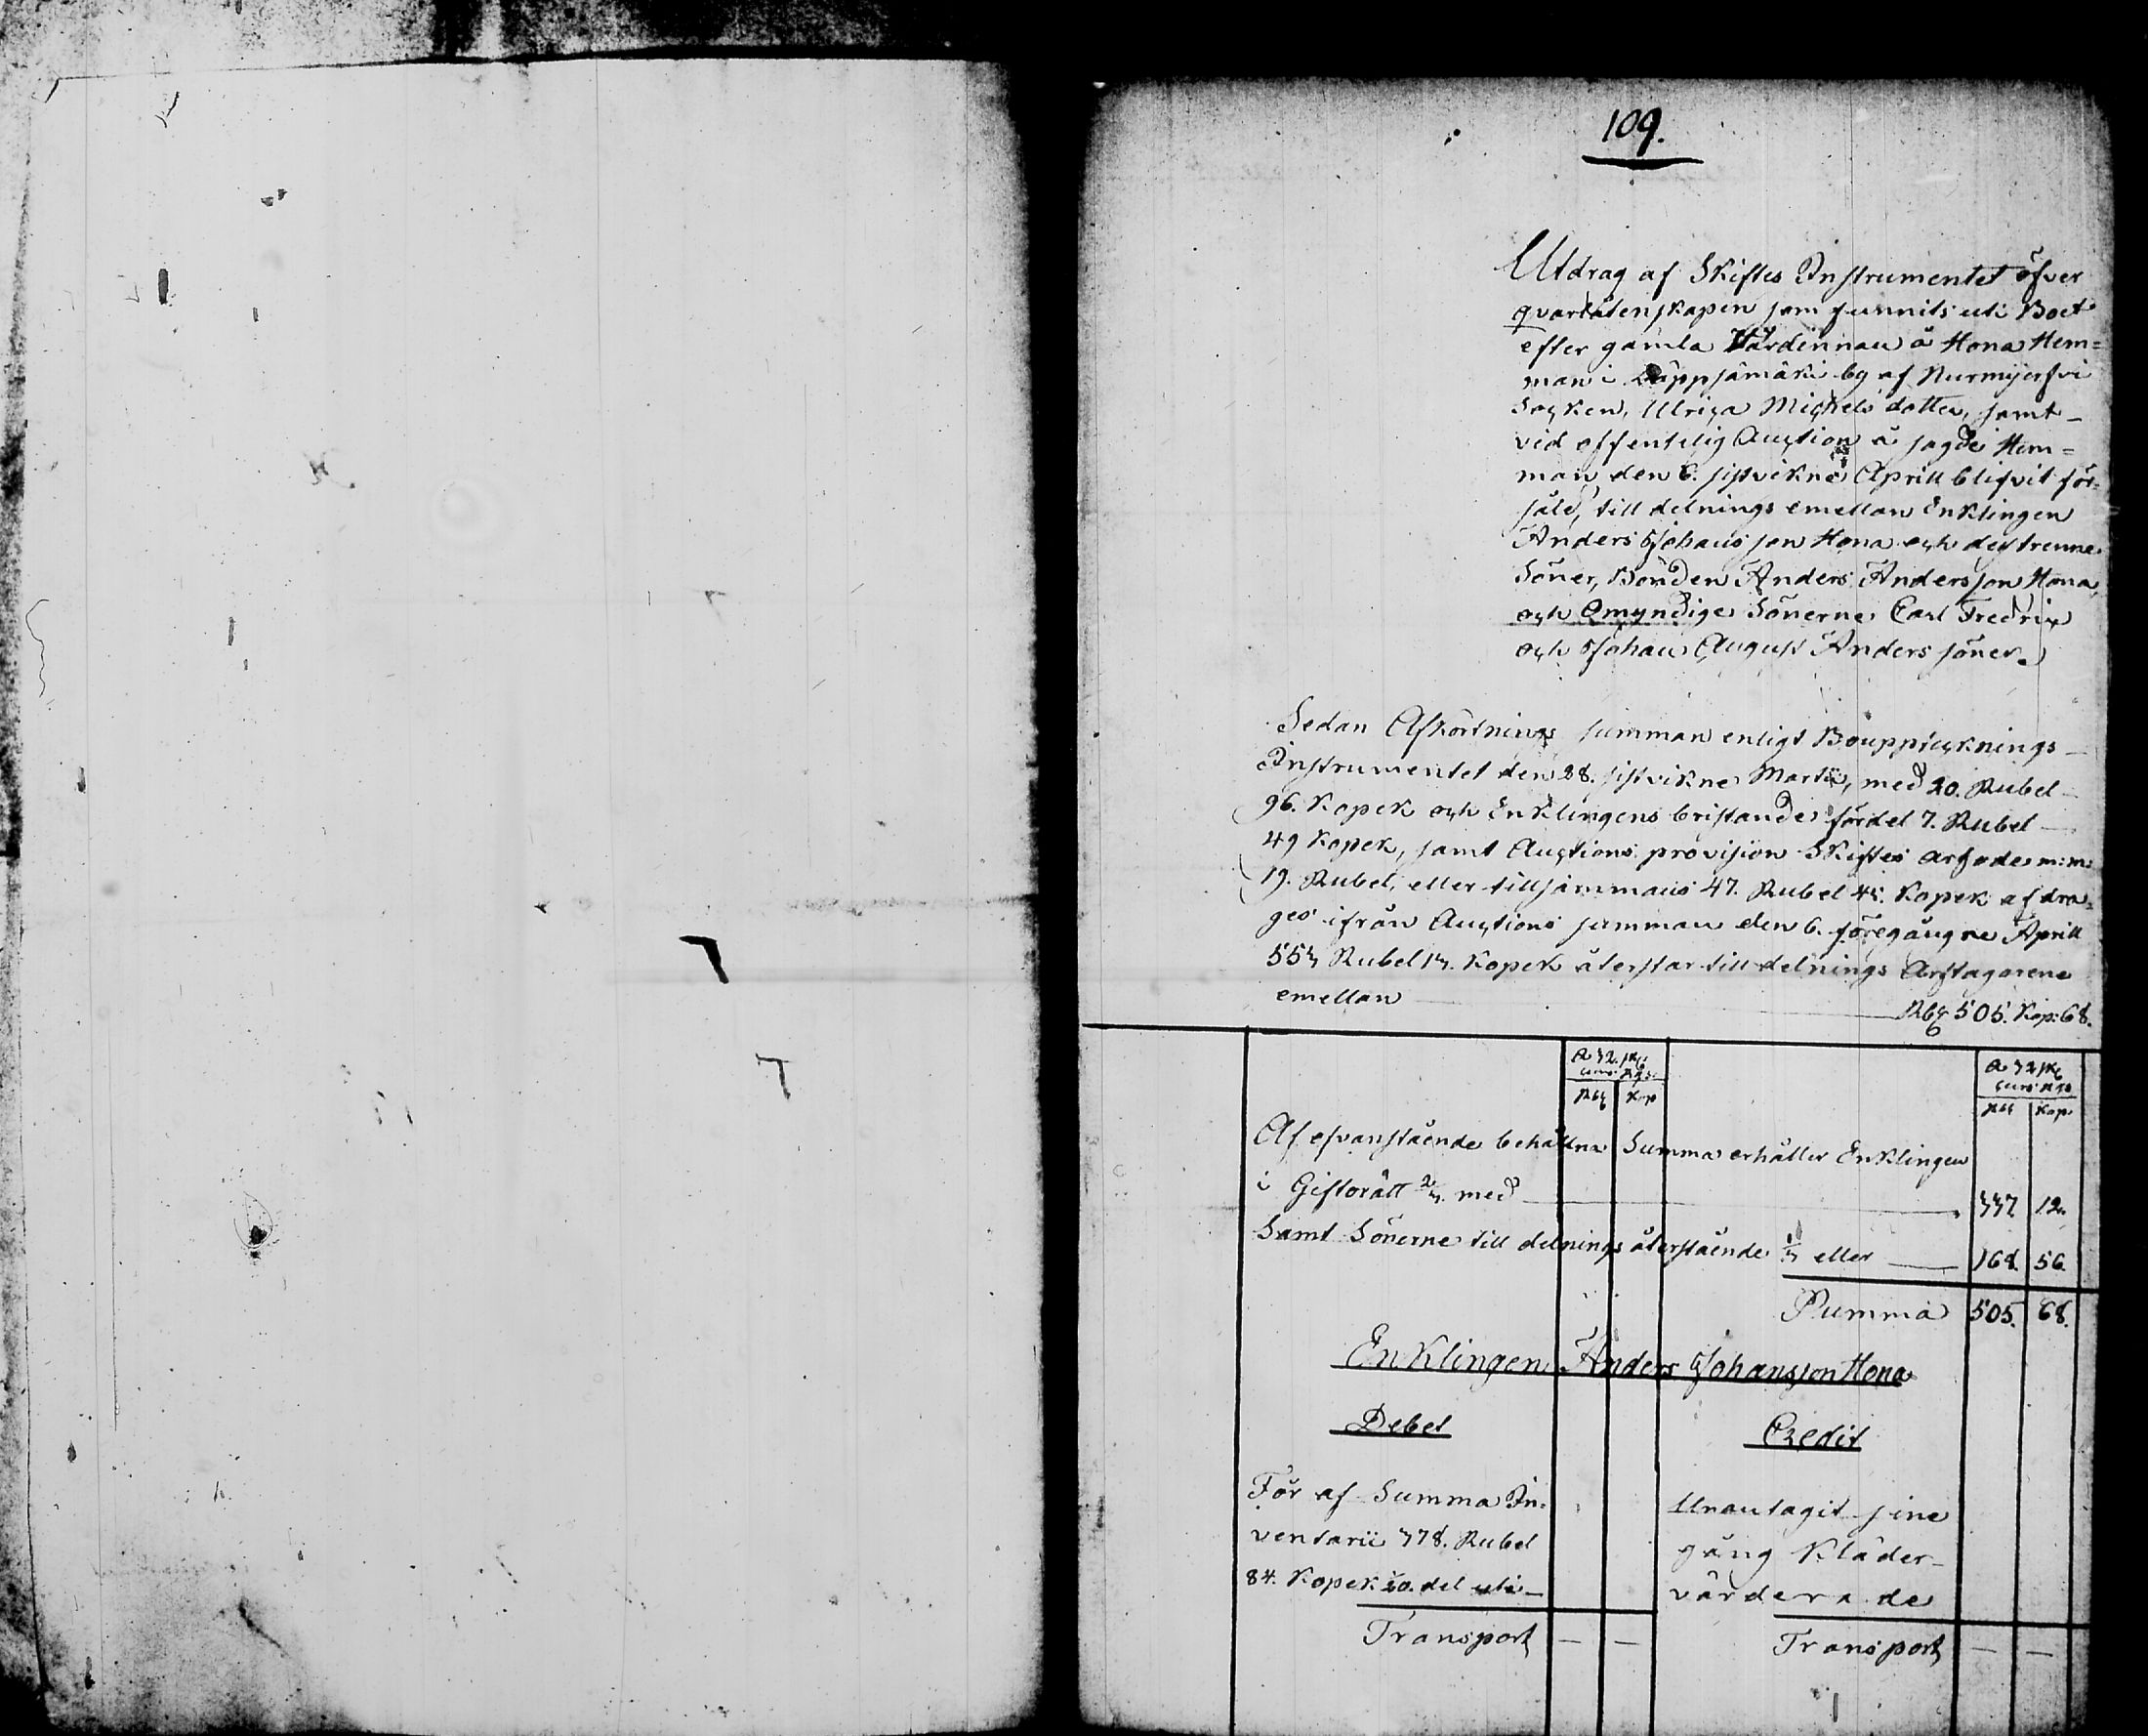 109.
Utdrag af Skiftes Instrumentet öfver
qvarlåtenskapen som funnits uti Boet
efter gamla Värdinnan å Hona Hem=
man i by af Nurmijerfvi
Socken, Ulrica Michels dotter, samt
vid offentelig Auction å sagde Hem=
man den 6. sistvikne Aprill blifvit för-
såld, till delnings emellan Enklingen
Anders Johans son Hona och des trenne
Söner, Bonden Anders Andersson Hona,
och Omyndige Sönerne Carl Fredric
och Johan August Anders söner.
Sedan Afkortnings summan enligt Bouppteknings
Instrumentet den 28. sistvikne Martii, med 20. Rubel
96. Kopek och Enklingens bristande fördel 7. Rubel
49 Kopek, samt Auctions provision Skiftes arfvode m:m:
19. Rubel, eller tillsammans 47. Rubel 45. Kopek afdra=
ges ifrån Auctions summan den 6. föregångne Aprill
553 Rubel 13. Kopek återstår till delnings Arftagarene
emellan Rbl 505. Kop: 68.
Rbl Kop Rbl Kop
Af ofvanstående behållna Summa erhåller Enklingen
i Giftorätt 2/3. med 337 12.
Samt Sönerne till delnings återstående 1/3 eller 168. 56.
Summa 505. 68.
Enklingen Anders Johansson Hona
Debet Credit
För af Summa In-
ventarii 378. Rubel
84. Kopek 20. del uti
Transport — —
Unantagit sine
gång Kläder
värderade
Transport — —